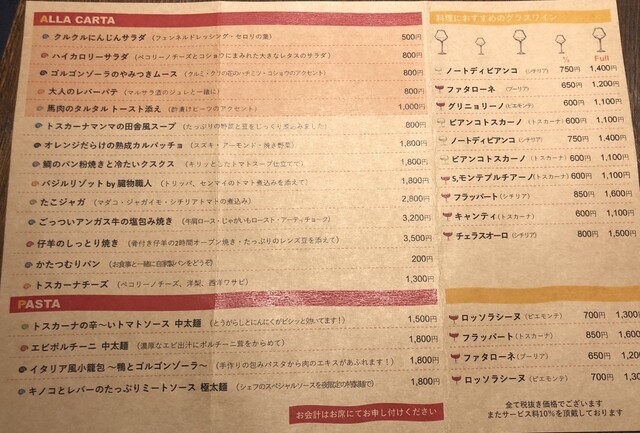 ALLA CARTA
クルクルにんじんサラダ (フェンネルドレッシング・セロリの葉) 500円
ハイカロリーサラダ (ペコリーノチーズとコショウにまみれた大きなレタスのサラダ) 800円
ゴルゴンゾーラのやみつきムース (クルミ・ラリの花のハチミツ・コショウのアクセント) 800円
大人のレバーパテ (マルサラ酒のジュレと一緒に) 800円
馬肉のタルタル トースト添え (酢漬けビーツのアクセント) 1,000円
トスカーナマンマの田舎風スープ (たっぷりの野菜と豆をじっくり煮込みました) 800円
オレンジだらけの熟成カルパッチョ (スズキ・アーモンド・焼き野菜) 1,800円
鯛のパン粉焼きと冷たいクスクス (キリッとしたトマトスープ仕立てで) 1,800円
バジルリゾット by 臓物職人 (トリッパ、センマイのトマト煮込みを添えて) 1,800円
たこジャガ (マダコ・ジャガイモ・シチリアトマトの煮込み) 2,800円
ごっついアンガス牛の塩包み焼き (牛肩ロース・じゃがいもロースト・アーティチョーク) 3,200円
仔羊のしっとり焼き (骨付き仔羊の2時間オーブン焼き・たっぷりのレンズ豆を添えて) 3,500円
かたつむりパン (お食事と一緒に自家製パンをどうぞ) 200円
トスカーナチーズ (ペコリーノチーズ、洋梨、西洋ワサビ) 1,300円
PASTA
トスカーナの辛〜いトマトソース 中太麺 (とうがらしとにんにくがビシッと効いてます!) 1,500円
エビポルチーニ 中太麺 (濃厚なエビ出汁にポルチーニ茸をからめて) 1,800円
イタリア風小籠包 〜鴨とゴルゴンゾーラ〜 (手作りの包みパスタから肉のエキスがあふれます!) 1,800円
キノコとレバーのたっぷりミートソース 極太麺 (シェフのスペシャルソースを夜限定の特製麺で) 1,800円
お会計はお席にてお申し付けください
料理におすすめのグラスワイン
½ Full
ノートディビアンコ (シチリア) 750円 1,400円
ファタローネ (プーリア) 650円 1,200円
グリニョリーノ (ピエモンテ) 600円 1,100円
ビアンコトスカーノ (トスカーナ) 600円 1,100円
ノートディビアンコ (シチリア) 750円 1,400円
ビアンコトスカーノ (トスカーナ) 600円 1,100円
S,モンテプルチアーノ (トスカーナ) 600円 1,100円
フラッパート (シチリア) 850円 1,600円
キャンティ (トスカーナ) 600円 1,100円
チェラスオーロ (シチリア) 800円 1,500円
ロッソラシーヌ (ピエモンテ) 700円 1,300
フラッパート (トスカーナ) 850円 1,600
ファタローネ (プーリア) 650円 1,20
ロッソラシーヌ (ピエモンテ) 700円 1,30
全て税抜き価格でございます
またサービス料10%を頂戴しております